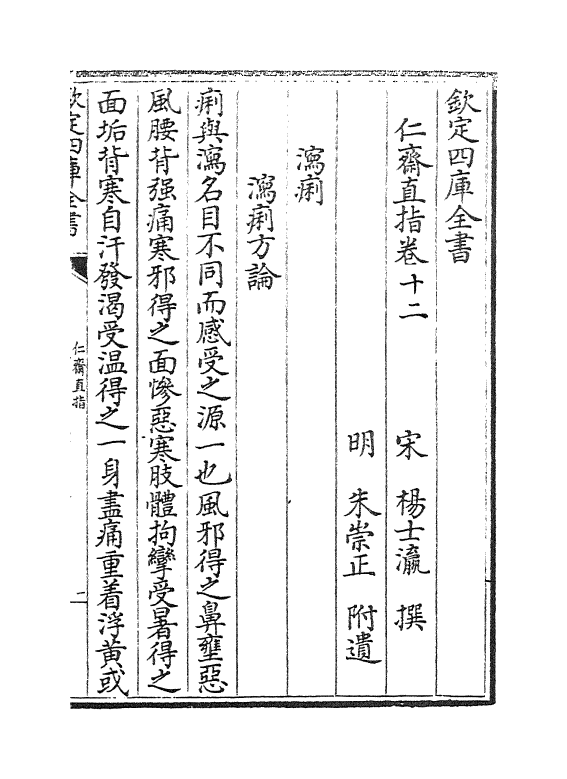 欽定四庫全書
仁齋直指卷十二
宋 楊士瀛 撰
明 朱崇正 附遺
瀉痢
瀉痢方論
痢與瀉名目不同而感受之源一也風邪得之鼻壅惡
風腰背强痛寒邪得之面慘惡寒肢體拘攣受暑得之
面垢背寒自汗發渴受温得之一身盡痛重着浮黄或
欽定四庫全書
仁齋直指